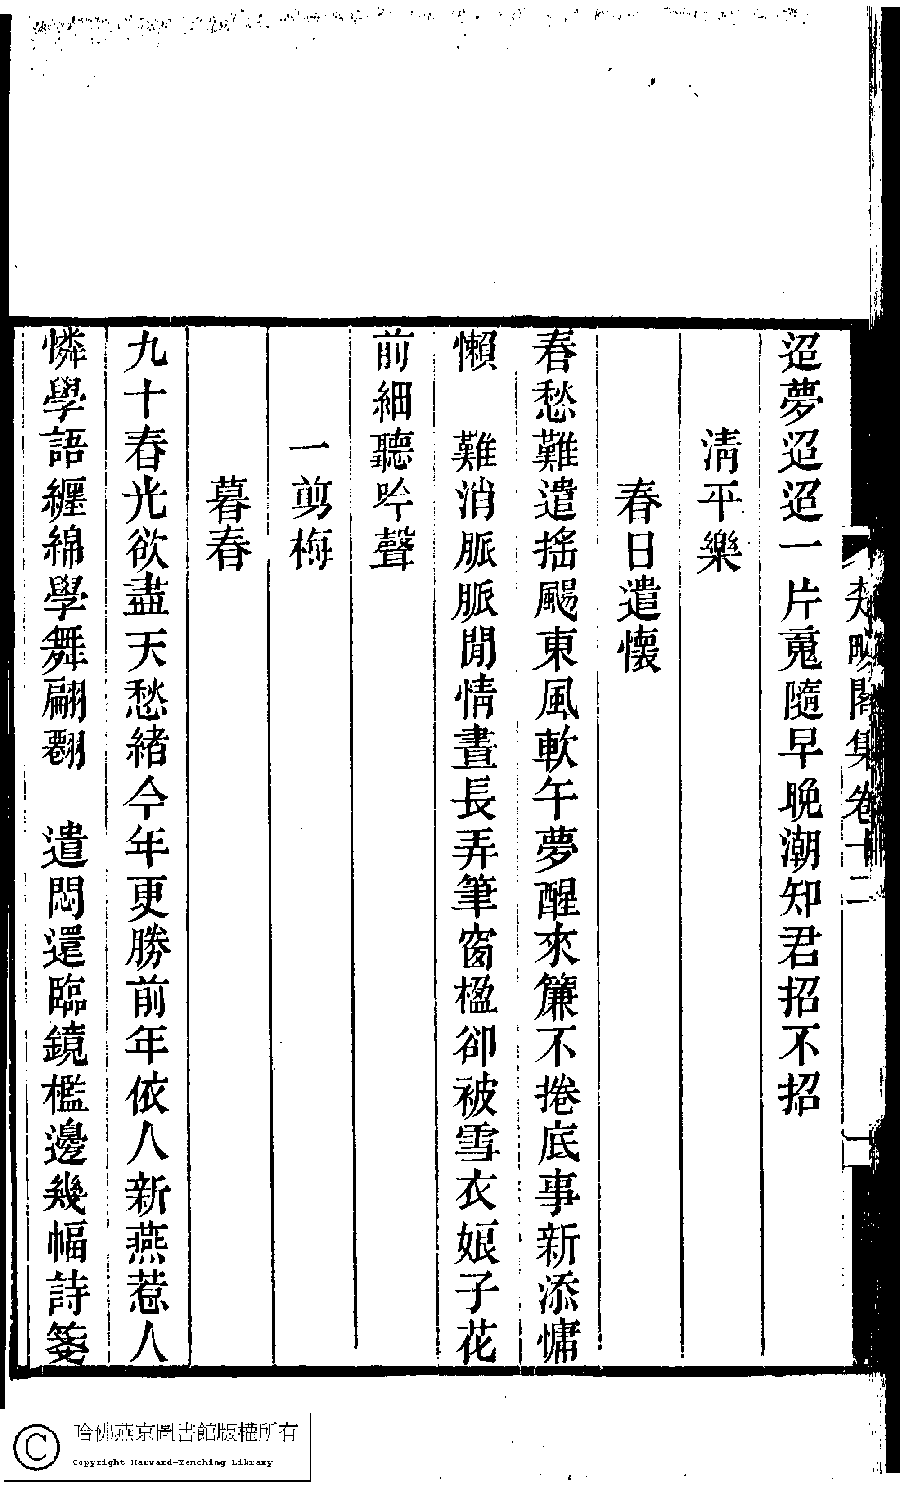 迢夢迢迢一片䰟隨早晚潮知君招不招
淸平樂
春日遣懷
春愁難遣搖颺東風軟午夢醒來簾不捲底事新添慵
懶　難消脈脈閒情晝長弄筆窗楹卻被雪衣娘子花
前細聽吟聲
一剪梅
暮春
九十春光欲盡天愁緒今年更勝前年依人新燕惹人
憐學語纏綿學舞翩翾　遣悶還臨鏡檻邊幾幅詩箋
閣集卷十二
哈佛燕京圖書館版權所有
Copyright Harvard-Yenching Library